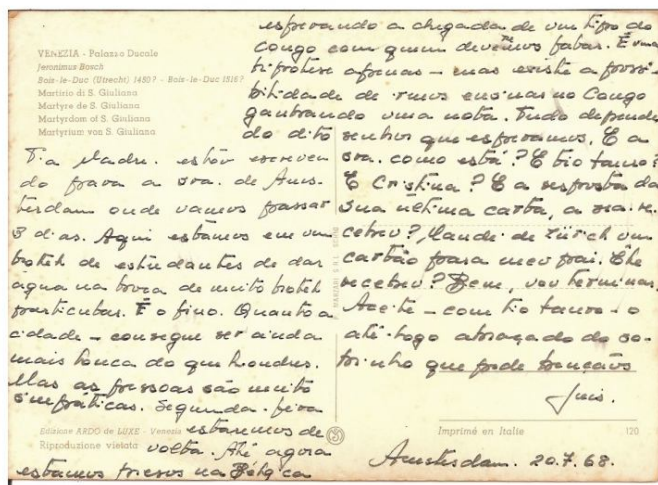 VENEZIA - Palazzo Ducale
Jeronimus Bosch
Bois-le-Duc (Utrecht) 1450? - Bois-le-Duc 1516?
Martirio di S. Giuliana
Martyre de S. Giuliana
Martyrdom of S. Giuliana
Martyrium von S. Giuliana
Tia Madre. estou escreven
do para a sra. de Ams-
terdam onde vamos passar
3 dias. Aqui estamos em um
hotel de estudantes de dar
agua na boca de muito hotel
particular. É o fino. Quanto a
cidade - consegue ser ainda
mais louca do que Londres.
Mas as pessoas são muito
simpáticas. Segunda-feira
estaremos de
volta. Até agora
estamos presos na Bélgica
esperando a chegada de um tipo do
Congo com quem devemos falar. É uma
hipotese apenas - mas existe a possi-
bilidade de irmos ensinar no Congo
ganhando uma nota. Tudo depende
do dito senhor que esperamos. E a
sra. como está? E tio Lauro?
E Cristina? E a resposta da
sua ultima carta, a sra. re-
cebeu? Mandei de Zürich um
cartão para meu pai. Ele
recebeu? Bem, vou terminar.
Aceite - com tio Lauro - o
até-logo abraçado do so-
brinho que pede bençãos
Luis.
Edizione ARDO de LUXE - Venezia
Riproduzione vietata
Imprimé en Italie
120
Amsterdam. 20.7.68.